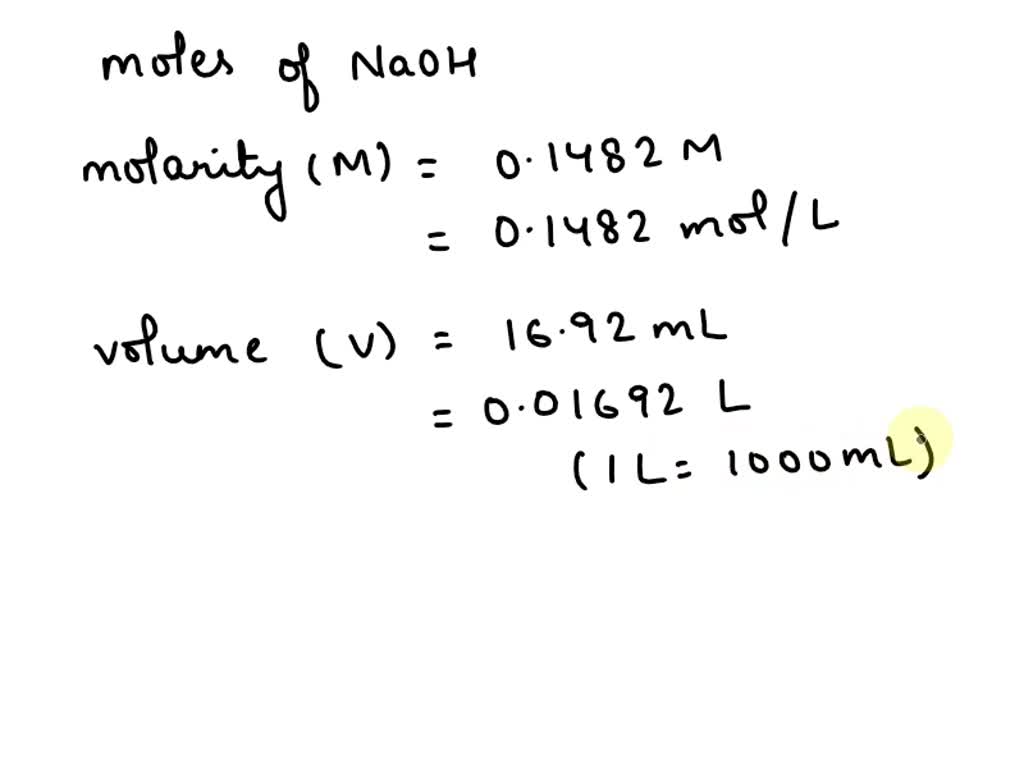 moles of NaOH
molarity (M) = 0.1482 M
= 0.1482 mol/L
volume (V) = 16.92 mL
= 0.01692 L
(1 L = 1000 mL)